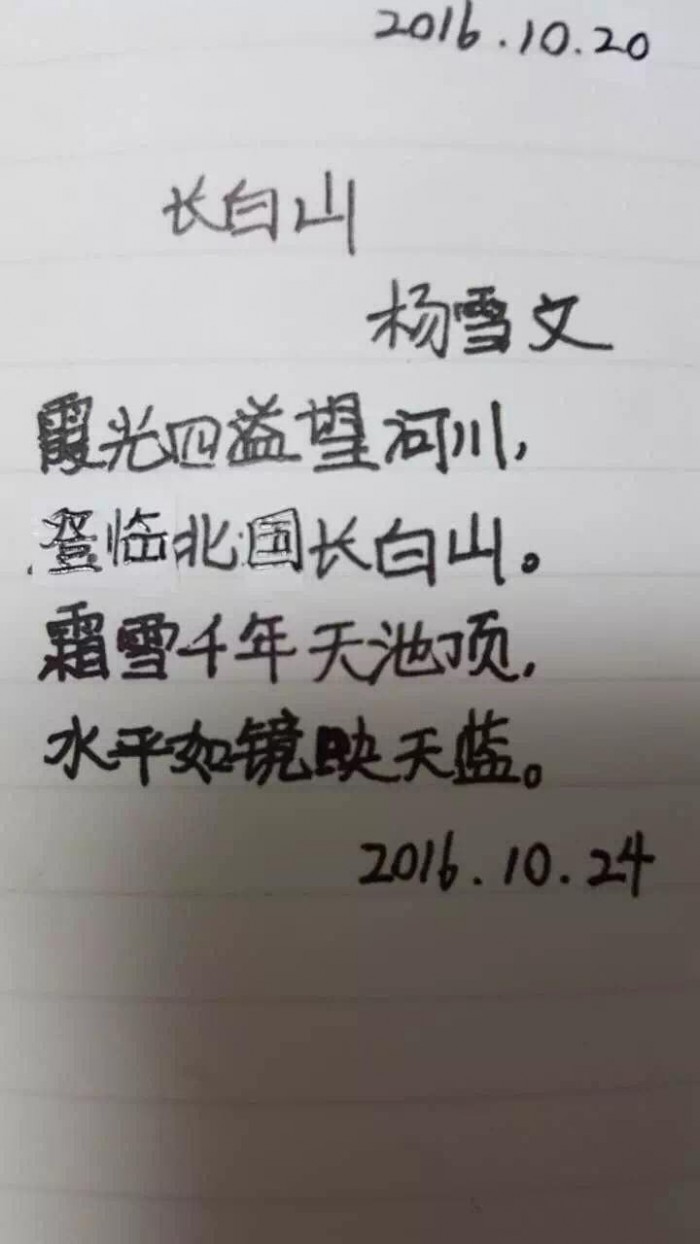 2016.10.20
长白山
杨雪文
霞光四溢望河川，
登临北国长白山。
霜雪千年天池顶，
水平如镜映天蓝。
2016.10.24